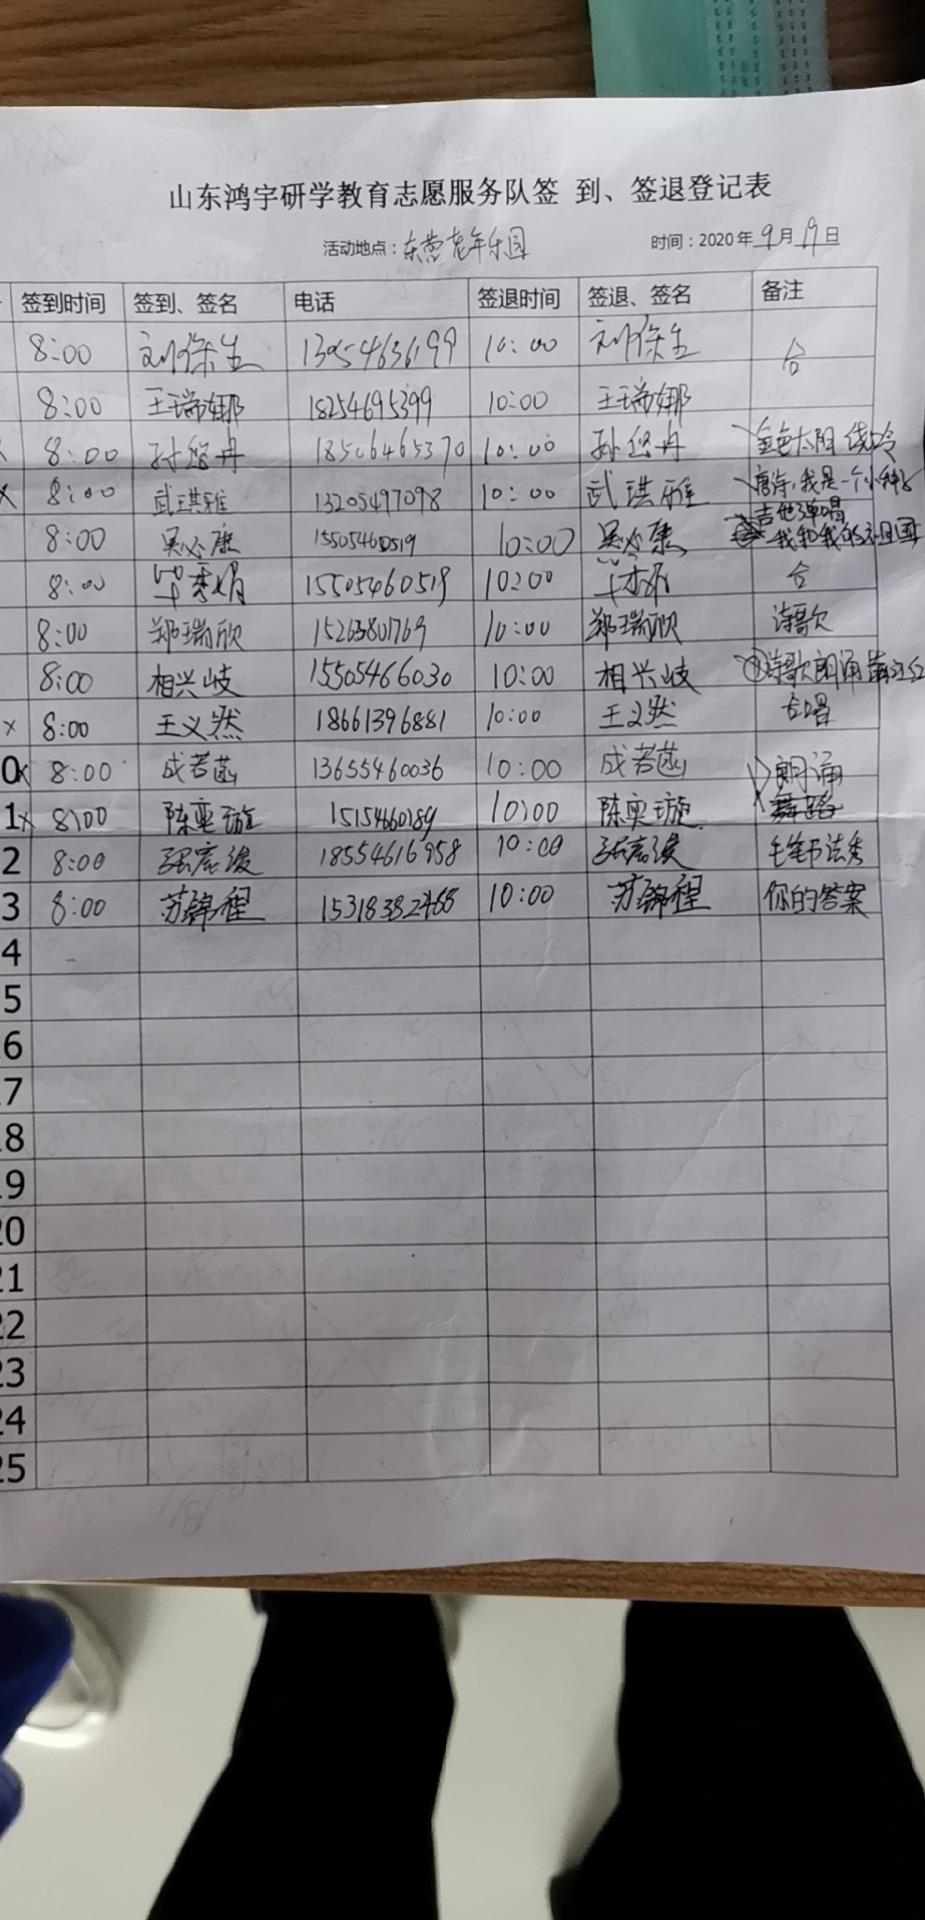 山东鸿宇研学教育志愿服务队签 到、签退登记表
活动地点：东营老年乐园 时间：2020年9月19日
签到时间 签到、签名 电话 签退时间 签退、签名 备注
8:00 刘保生 13954636199 10:00 刘保生 合
8:00 王瑞娜 18254695399 10:00 王瑞娜
8:00 孙悠丹 18506465370 10:00 孙悠丹 金色太阳
x 8:00 武琪雅 13205497098 10:00 武琪雅 唐诗，我是一个小
吉他弹唱
8:00 吴必康 15505460519 10:00 吴必康 我和我的祖国
8:00 15505460519 10:00 合
8:00 郑瑞欣 15263801769 10:00 郑瑞欣 诗歌
8:00 相兴岐 15505466030 10:00 相兴岐 诗歌朗诵 满江红
x 8:00 王义然 18661396881 10:00 王义然 合唱
0x 8:00 成若菡 13655460036 10:00 成若菡 朗诵
1x 8:00 陈奕璇 15154660189 10:00 陈奕璇
2 8:00 18554616958 10:00 毛笔书法秀
3 8:00 苏锦程 15318382468 10:00 苏锦程 你的答案
4
5
6
7
18
19
20
21
22
23
24
25